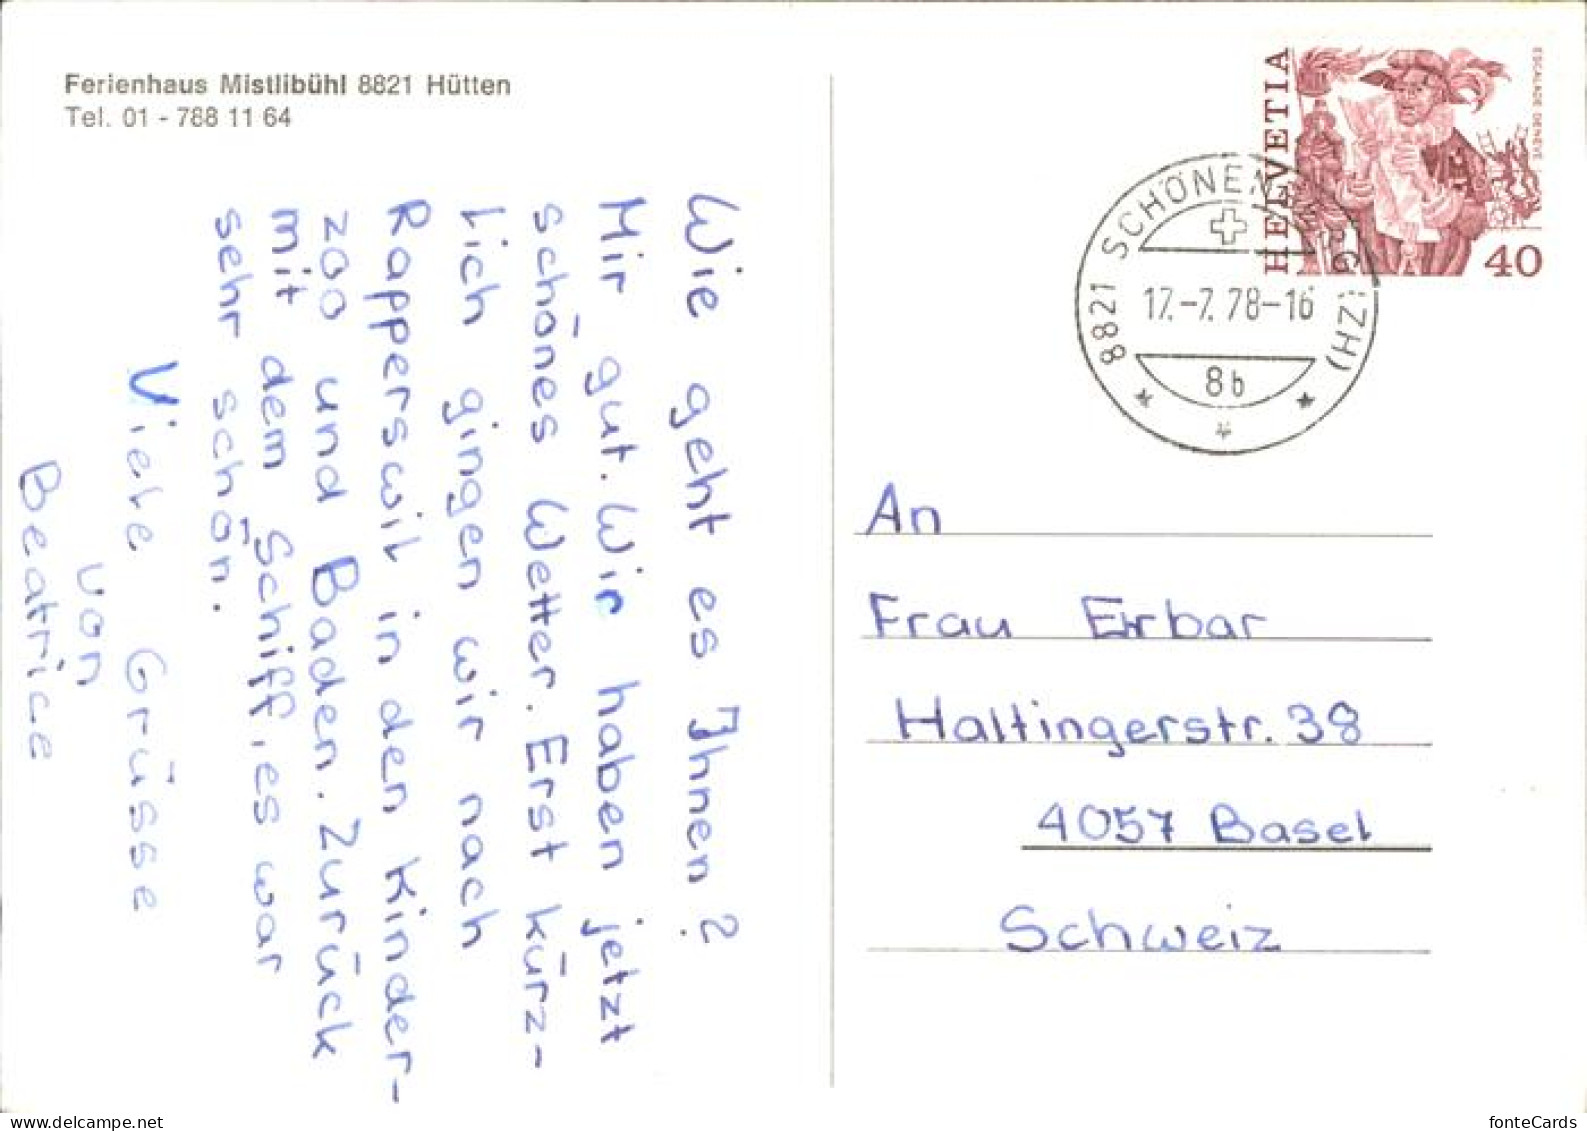 Ferienhaus Mistlibühl 8821 Hütten
Tel. 01 - 788 11 64
Wie geht es Ihnen?
Mir gut. Wir haben jetzt
schönes Wetter. Erst kürz-
lich gingen wir nach
Rapperswil in den Kinder-
zoo und Baden. Zurück
mit dem Schiff, es war
sehr schön.
Viele Grüsse
von
Beatrice
HELVETIA
ESCALADE GENÈVE
40
8821 SCHÖNENBERG (ZH)
17.-7.78-16
8b
An
Frau Erbar
Haltingerstr. 38
4057 Basel
Schweiz
delcampe.net
fonteCards